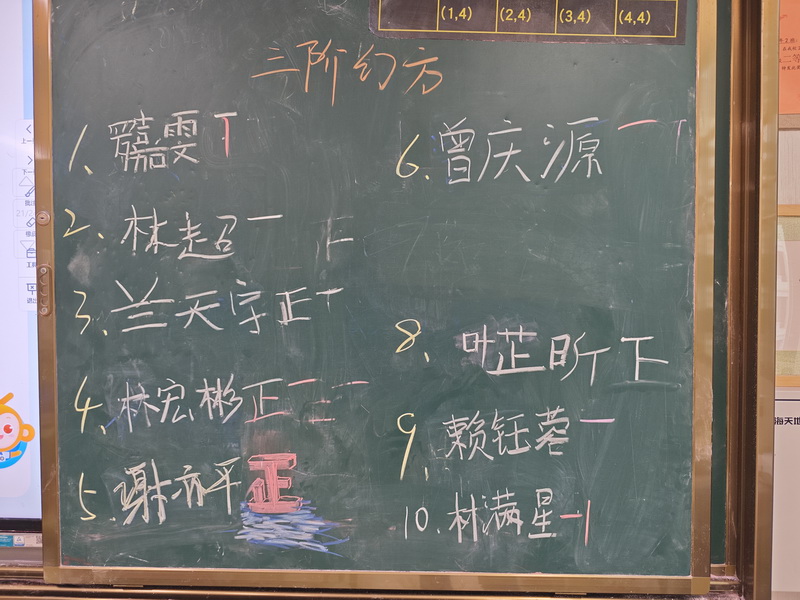 (1,4) (2,4) (3,4) (4,4)
三阶幻方
1、雯 丅
2、林超 一 正
3、兰天宇 正 一
4、林宏彬 正 一 二 一
5、谢亦平 正
6、曾庆源 一
8、叶芷昕 下
9、赖钰蓉 一
10、林满星 一 1
二等
海天地